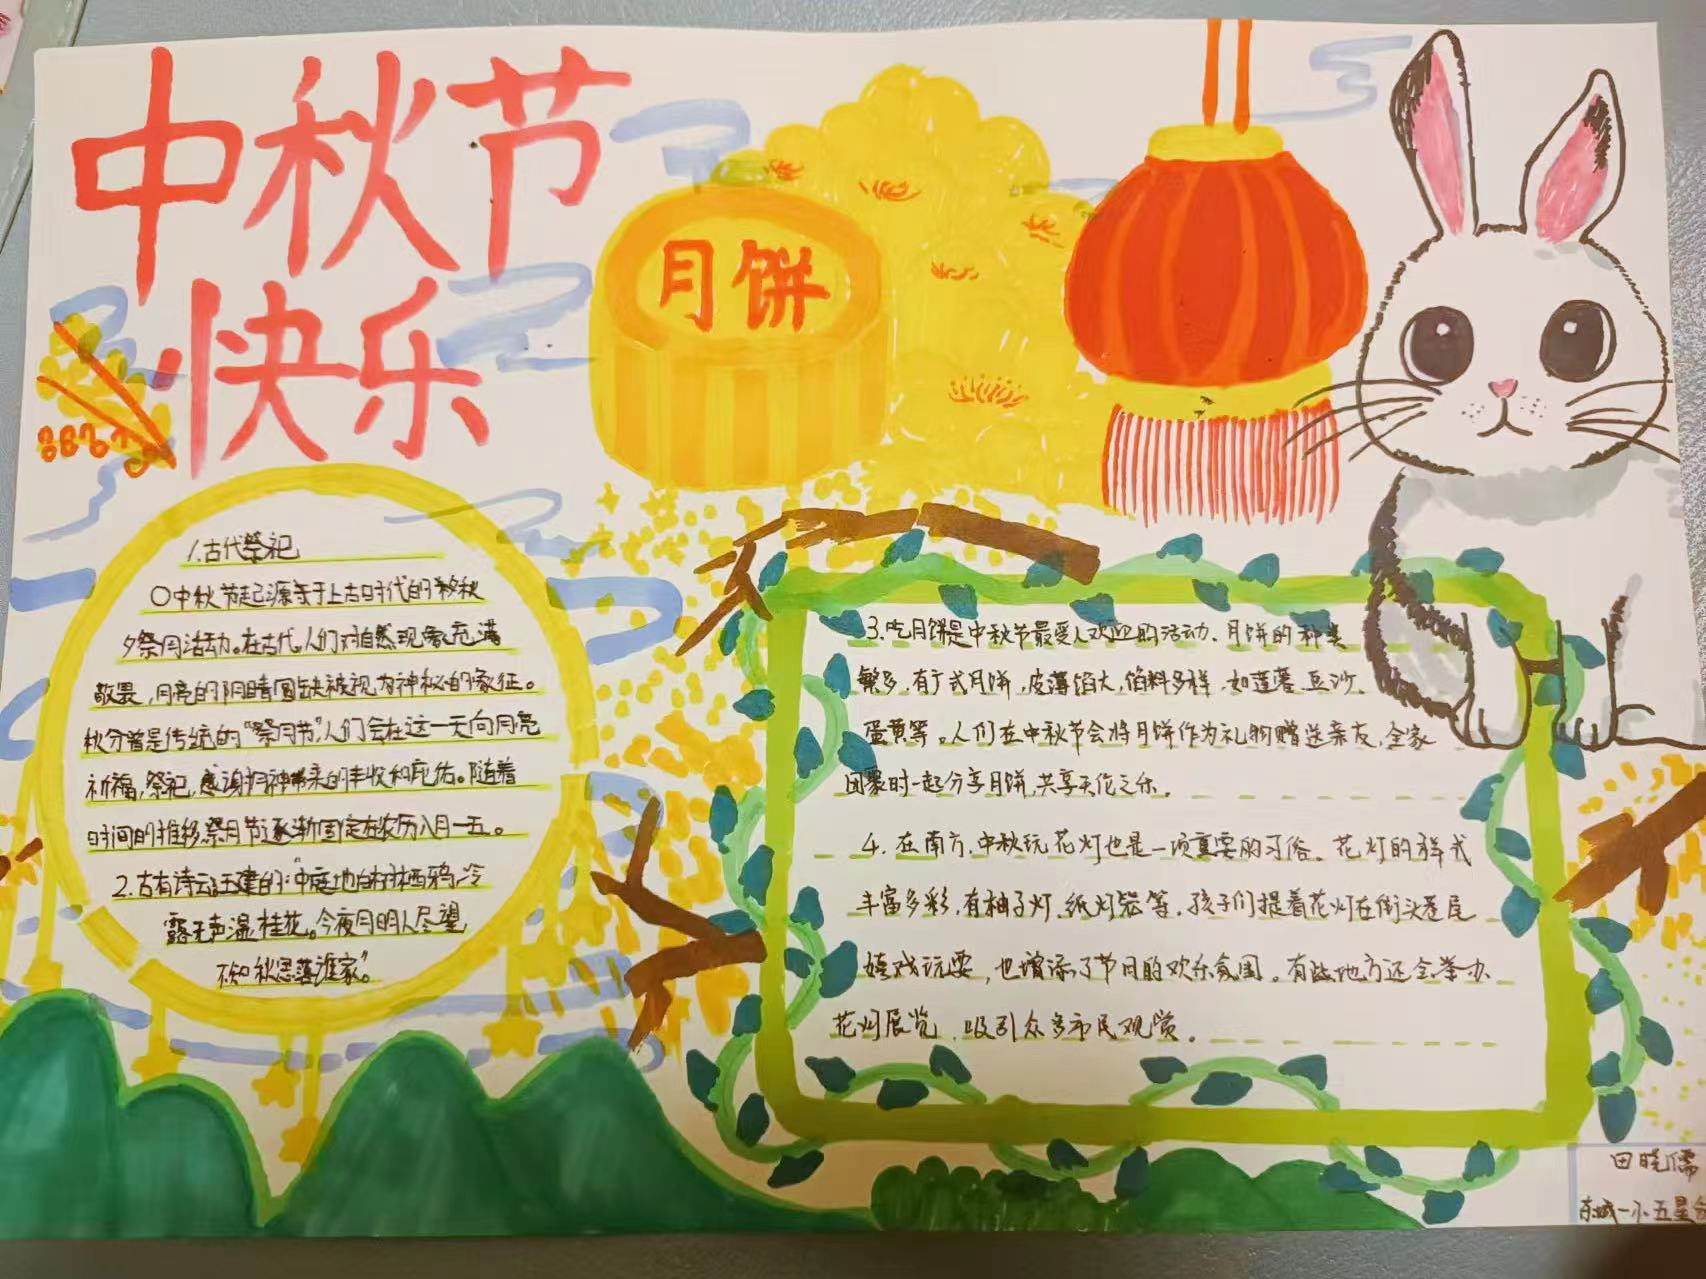 中秋节
快乐
月饼
1.古代祭祀
中秋节起源于上古时代的秋
夕祭月活动。在古代,人们对自然现象充满
敬畏,月亮的阴晴圆缺被视为神秘的象征。
秋分曾是传统的“祭月节”,人们会在这一天向月亮
祈福,祭祀,感谢月神带来的丰收和庇佑。随着
时间的推移,祭月节逐渐固定在农历八月十五。
2.古有诗云王建的:“中庭地白树栖鸦,冷
露无声湿桂花。今夜月明人尽望
不知秋思落谁家”。
3.吃月饼是中秋节最受人欢迎的活动.月饼的种类
繁多,有广式月饼,皮薄馅大,馅料多样,如莲蓉、豆沙、
蛋黄等。人们在中秋节会将月饼作为礼物赠送亲友,全家
团聚时一起分享月饼,共享天伦之乐。
4.在南方,中秋玩花灯也是一项重要的习俗。花灯的样式
丰富多彩,有柚子灯、纸灯笼等,孩子们提着花灯在街头巷尾
嬉戏玩耍,也增添了节日的欢乐氛围。有些地方还会举办
花灯展览,吸引众多市民观赏。
田晓儒
东城一小五星